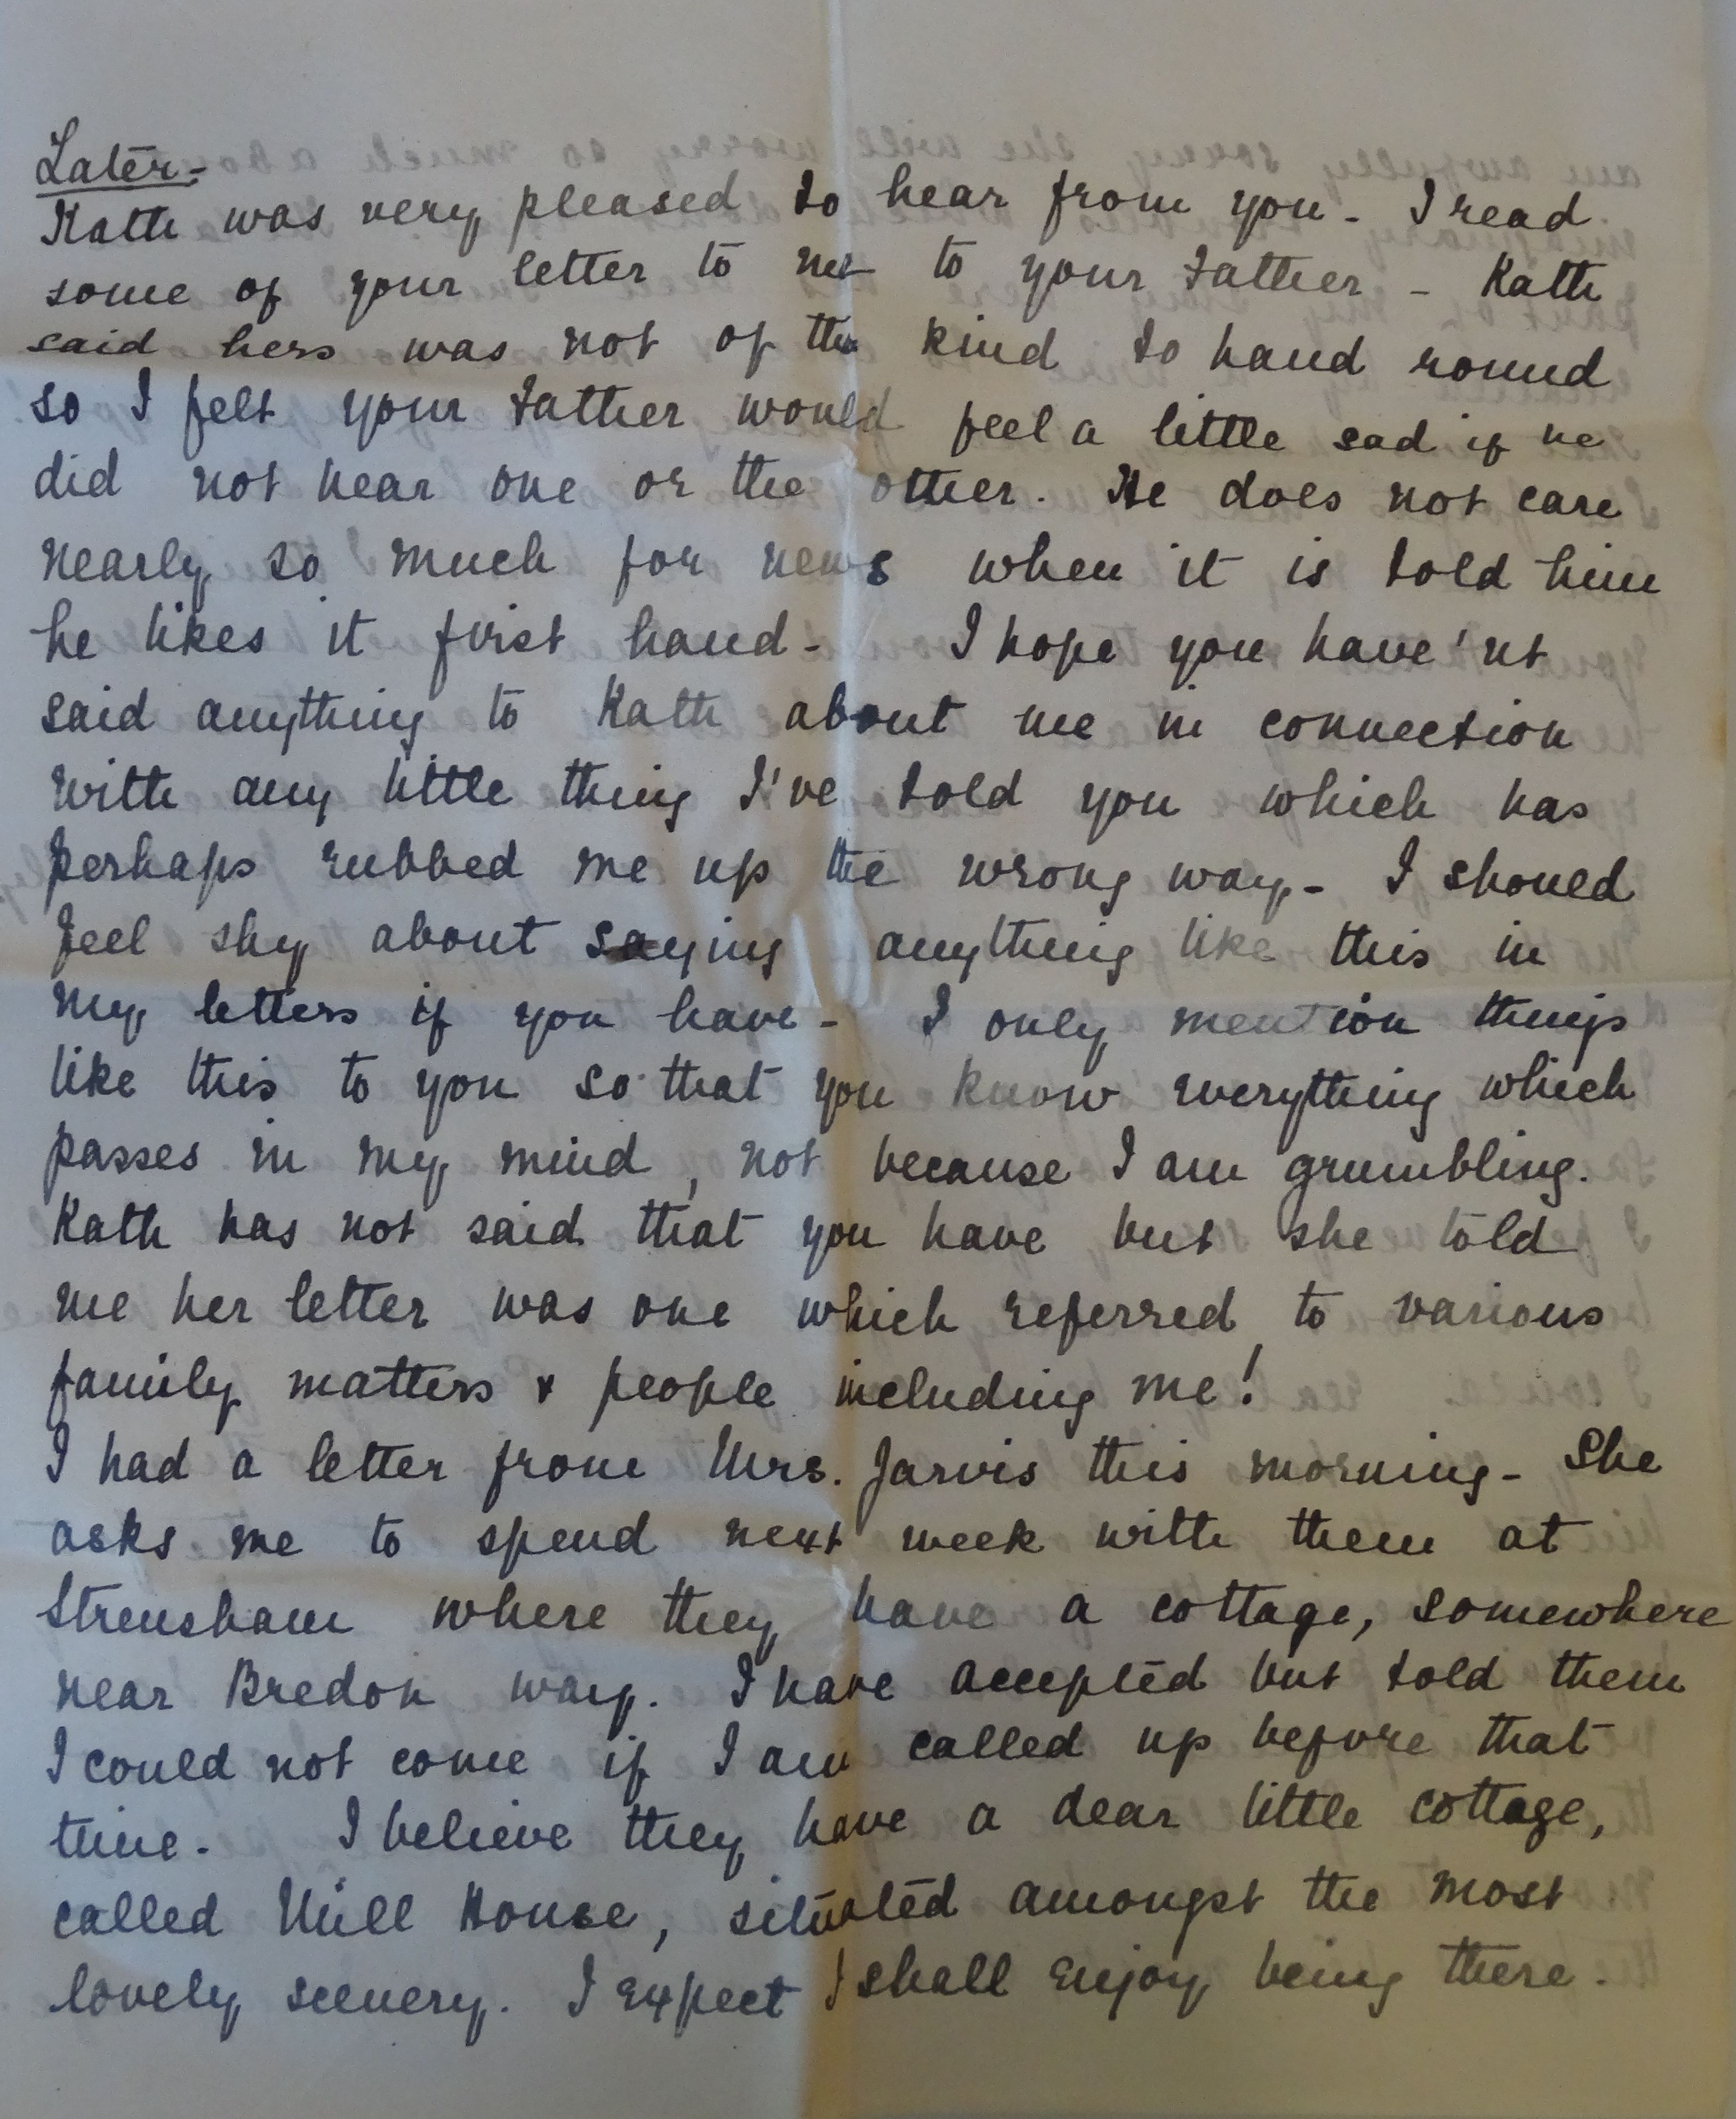 Later-
Kath was very pleased to hear from you - I read
some of your letter to me to your Father - Kath
said hers was not of the kind to hand round
so I felt your Father would feel a little sad if he
did not hear one or the other. He does not care
nearly so much for news when it is told him
he likes it first hand - I hope you have'nt
said anything to Kath about me in connection
with any little thing I've told you which has
perhaps rubbed me up the wrong way - I should
feel shy about saying anything like this in
my letters if you have - I only mention things
like this to you so that you know everything which
passes in my mind, not because I am grumbling.
Kath has not said that you have but she told
me her letter was one which referred to various
family matters & people including me!
I had a letter from Mrs. Jarvis this morning - She
asks me to spend next week with them at
Strensham where they have a cottage, somewhere
near Bredon way. I have accepted but told them
I could not come if I am called up before that
time. I believe they have a dear little cottage,
called Mill House, situated amongst the most
lovely scenery. I expect I shall enjoy being there.